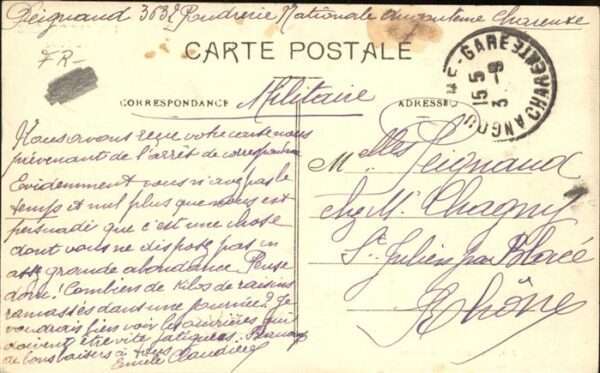 Peignaud 363e Poudrerie Nationale Angoulême Charente
FR-
CARTE POSTALE
Militaire
CORRESPONDANCE
ADRESSE
GARE
CHARENTE
15 5
3 -9
Nous avons reçu votre carte nous
prévenant de l'arrêt de correspondre
Evidemment vous n'avez pas le
temps et nul plus que nous est
persuadé que c'est une chose
dont vous ne disposez pas en
assez grande abondance. Pense
donc! Combien de kilos de raisins
ramassés dans une journée? Je
voudrais bien voir les ouvrières qui
doivent être vite fatiguées.
de bons baisers à
Emile Claudius
Melles Peignaud
chez Mr Chagny
St Julien par Blacé
Rhône